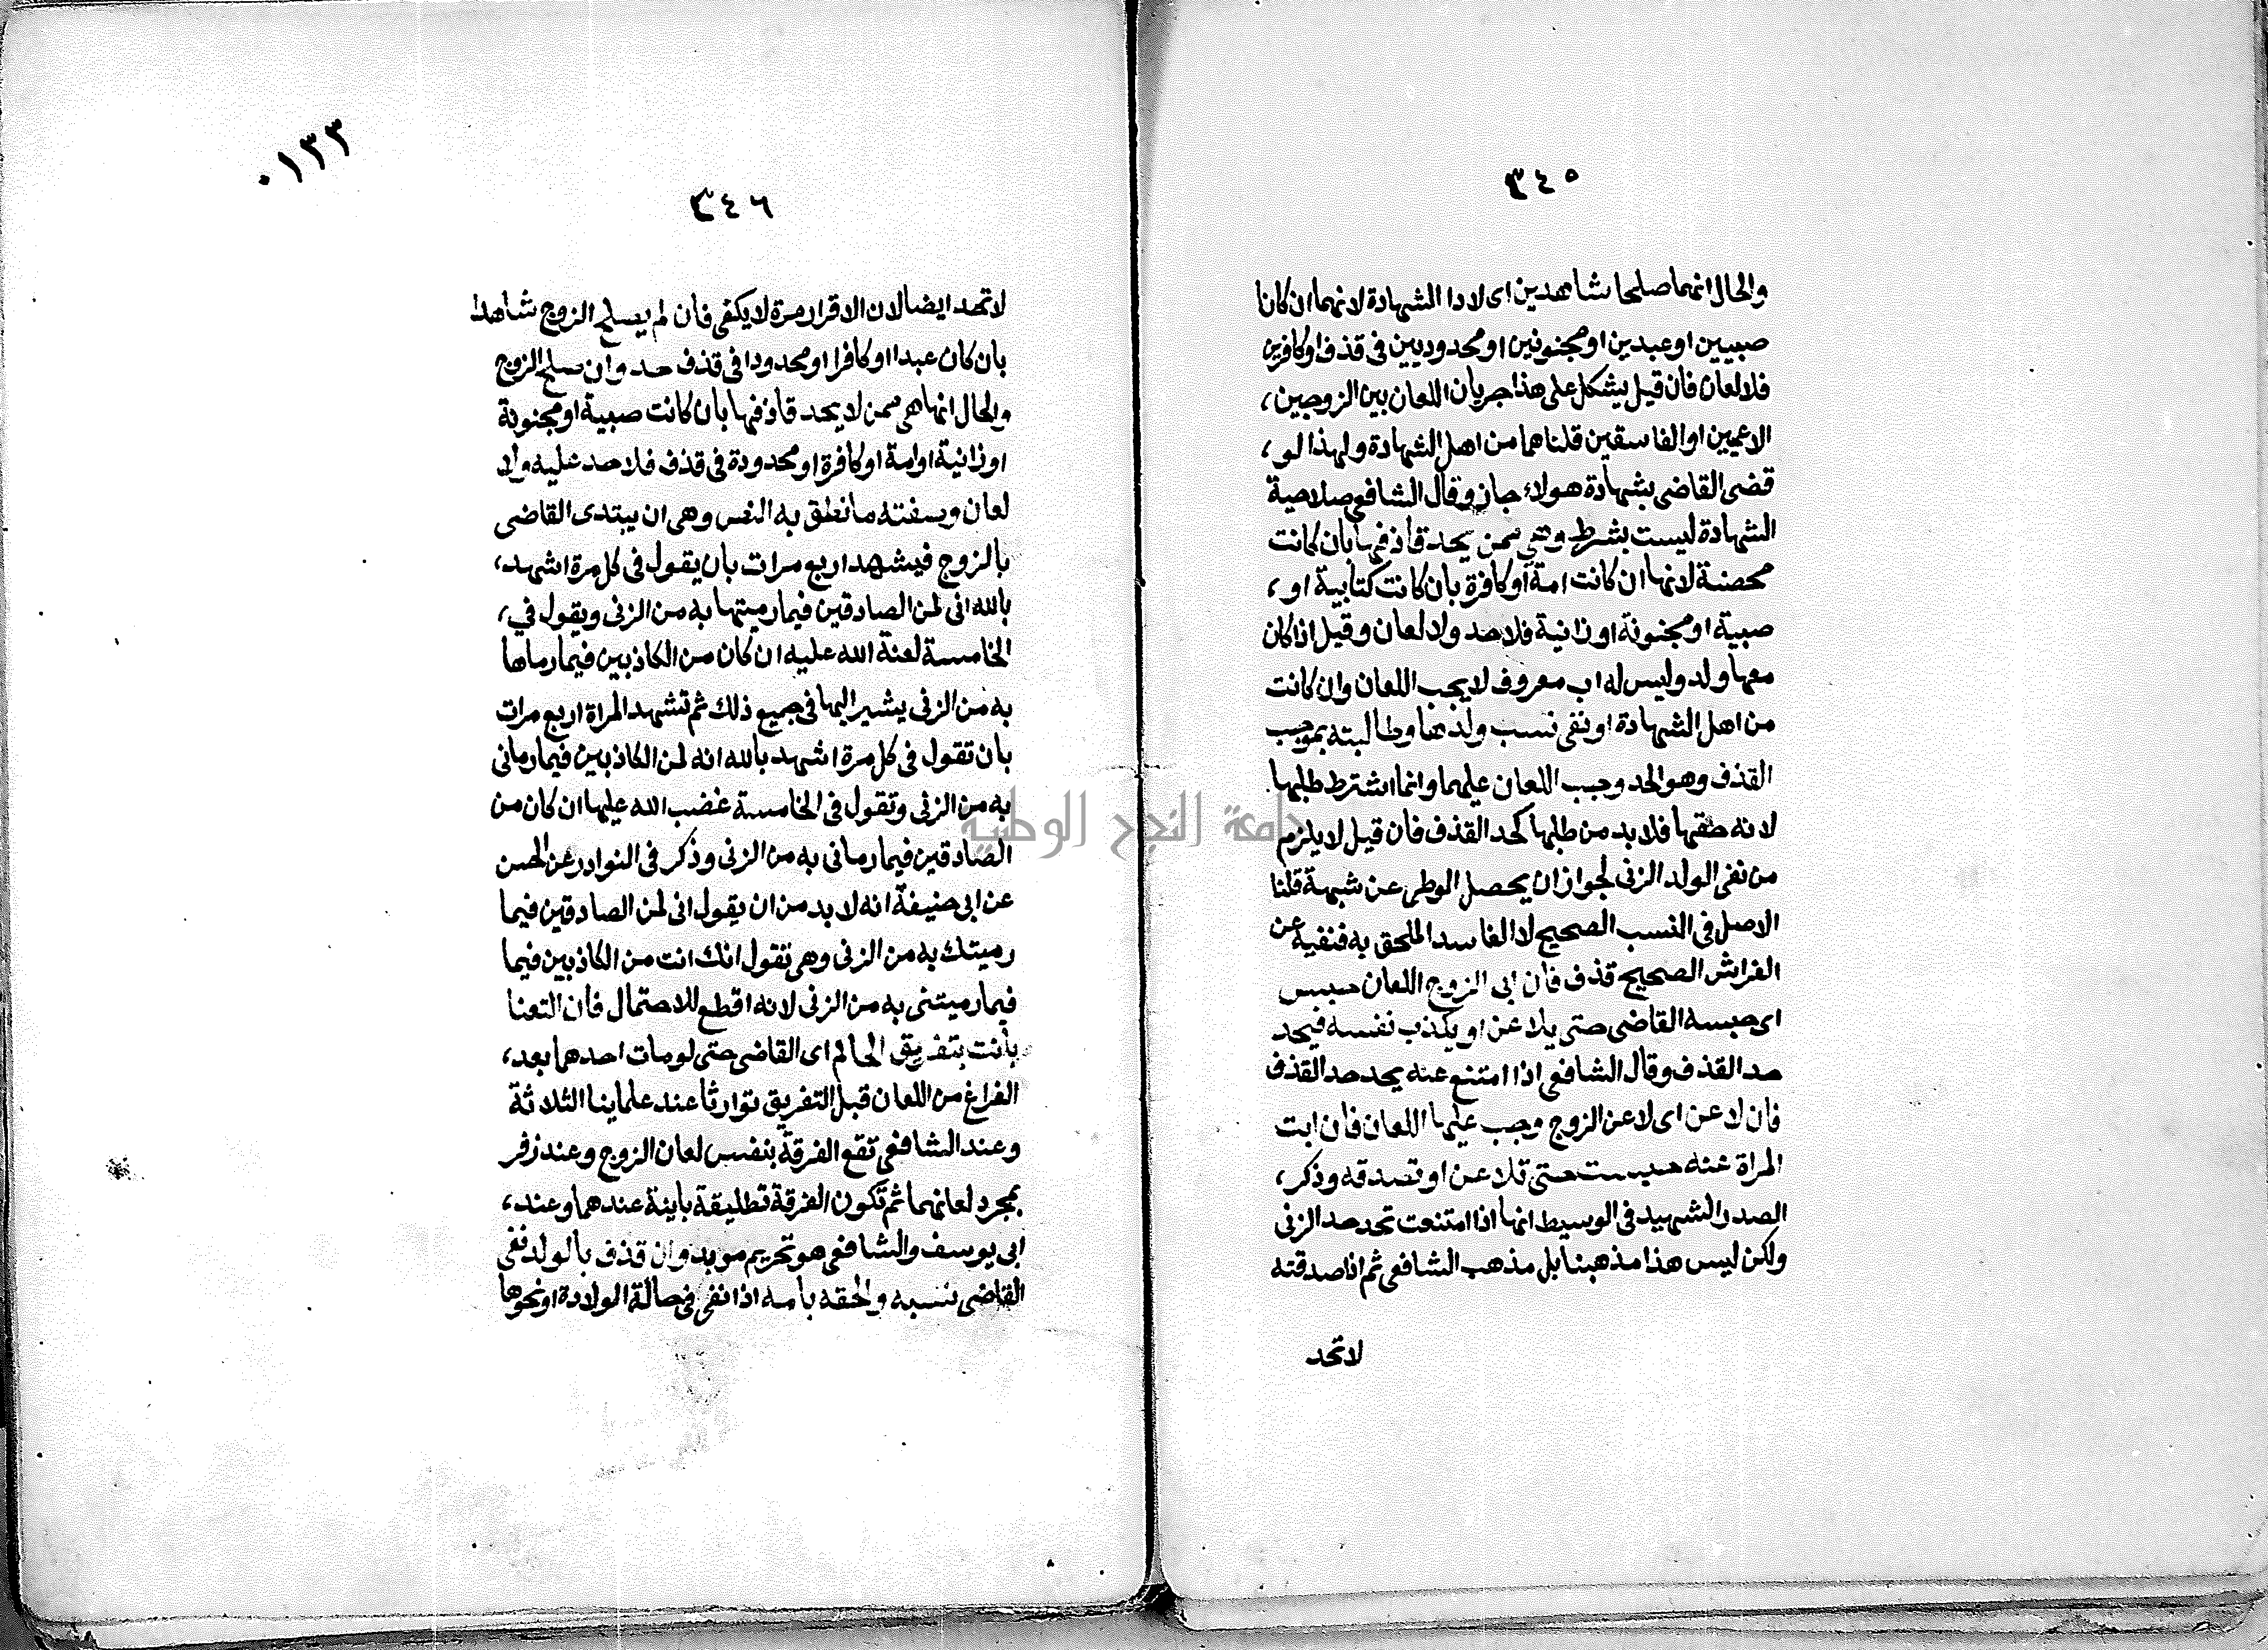 ٣٤٥
والحال انهما صلحا شاهدين اى لادا الشهادة لانهما ان كانا
صبيين او عبدين او مجنونين او محدوديين فى قذف او كافرين
فلا لعان فان قيل يشكل على هذا جريان اللعان بين الزوجين،
الاعميين او الفاسقين قلنا هما من اهل الشهادة ولهذا لو،
قضى القاضى بشهادة هولاء جاز وقال الشافعى صلاحية
الشهادة ليست بشرط وهى ممن يحد قاذفها بان كانت
محصنة لانها ان كانت امة او كافرة بان كانت كتابية او،
صبية او مجنونة او زانية فلا حد ولا لعان وقيل اذا كان
معها ولد وليس له اب معروف لا يجب اللعان وان كانت
من اهل الشهادة او نفى نسب ولدها وطالبته بموجب
القذف وهو الحد وجب اللعان عليهما وانما اشترط طلبها
لانه حقها فلا بد من طلبها كحد القذف فان قيل لا يلزم
من نفى الولد الزنى لجواز ان يحصل الوطى عن شبهة قلنا
الاصل فى النسب الصحيح لا الفاسد الملحق به فنفيه عن
الفراش الصحيح قذف فان ابى الزوج اللعان حبس
اى حبسه القاضى حتى يلاعن او يكذب نفسه فيحد
حد القذف وقال الشافعى اذا امتنع عنه يحد حد القذف
فان لاعن اى لاعن الزوج وجب عليها اللعان فان ابت
المراة عنه حبست حتى تلاعن او تصدقه وذكر،
الصدر الشهيد فى الوسيط انها اذا امتنعت تحد حد الزنى
ولكن ليس هذا مذهبنا بل مذهب الشافعى ثم اذا صدقته
لا تحد
٠١٣٣
٣٤٦
لا تحد ايضا لان الاقرار مرة لا يكفى فان لم يصلح الزوج شاهدا
بان كان عبدا او كافرا او محدودا فى قذف حد وان صلح الزوج
والحال انها هى ممن لا يحد قاذفها بان كانت صبية او مجنونة
او زانية او امة او كافرة او محدودة فى قذف فلا حد عليه ولا
لعان وصفته ما نطق به النص وهى ان يبتدى القاضى
بالزوج فيشهد اربع مرات بان يقول فى كل مرة اشهد،
بالله انى لمن الصادقين فيما رميتها به من الزنى ويقول في،
الخامسة لعنة الله عليه ان كان من الكاذبين فيما رماها
به من الزنى يشير اليها فى جميع ذلك ثم تشهد المراة اربع مرات
بان تقول فى كل مرة اشهد بالله انه لمن الكاذبين فيما رمانى
به من الزنى وتقول فى الخامسة غضب الله عليها ان كان من
الصادقين فيما رمانى به من الزنى وذكر فى النوادر عن الحسن
عن ابى حنيفة انه لا بد من ان يقول انى لمن الصادقين فيما
رميتك به من الزنى وهى تقول انك انت من الكاذبين فيما
فيما رميتنى به من الزنى لانه اقطع للاحتمال فان التعنا
بانت بتفريق الحاكم اى القاضى حتى لو مات احدهما بعد،
الفراغ من اللعان قبل التفريق توارثا عند علماينا الثلاثة
وعند الشافعى تقع الفرقة بنفس لعان الزوج وعند زفر
بمجرد لعانهما ثم تكون الفرقة تطليقة باينة عندهما وعند،
ابى يوسف والشافعى هو تحريم موبد وان قذف بالولد نفى
القاضى نسبه والحقه بامه اذا نفى فى حالة الولادة او نحوها
جامعة النجاح الوطنية